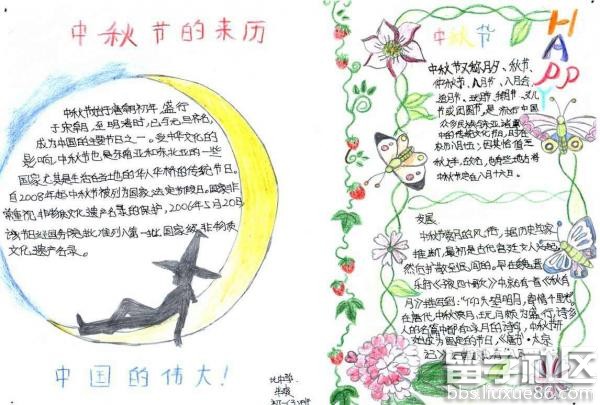 中秋节的来历
中秋节始于唐朝初年，盛行
于宋朝，至明清时，已与元旦齐名，
成为中国的主要节日之一。受中华文化的
影响，中秋节也是东南亚和东北亚的一些
国家尤其是生活在当地的华人华侨的传统节日。
自2008年起中秋节被列为国家法定节假日。国家非
常重视非物质文化遗产名录的保护，2006年5月20日
该节日经国务院批准列入第一批国家级非物质
文化遗产名录。
中国的伟大！
HAPPY
中秋节
中秋节又称月夕、秋节、
仲秋节、八月节、八月会、
追月节、玩月节、拜月节、女儿
节或团圆节，是流行中国
的传统文化节日，时在
农历八月十五；因其恰值三
秋之半，故名，也有些地方将
中秋节定在八月十六日。
发展
中秋赏月的风俗，据历史学家
推断，最初是古代宫廷文人兴起，
然后扩散至民间的。早在魏晋
乐府《子夜四十歌》中就有一首《秋有
月》描写到：“仰头望明月，寄情千里光”
在唐代，中秋赏月、玩月颇为盛行，许多
人的名篇中都有咏月的诗句，中秋节开
《唐书·太宗
留学社区
bbs.liuxue86.com